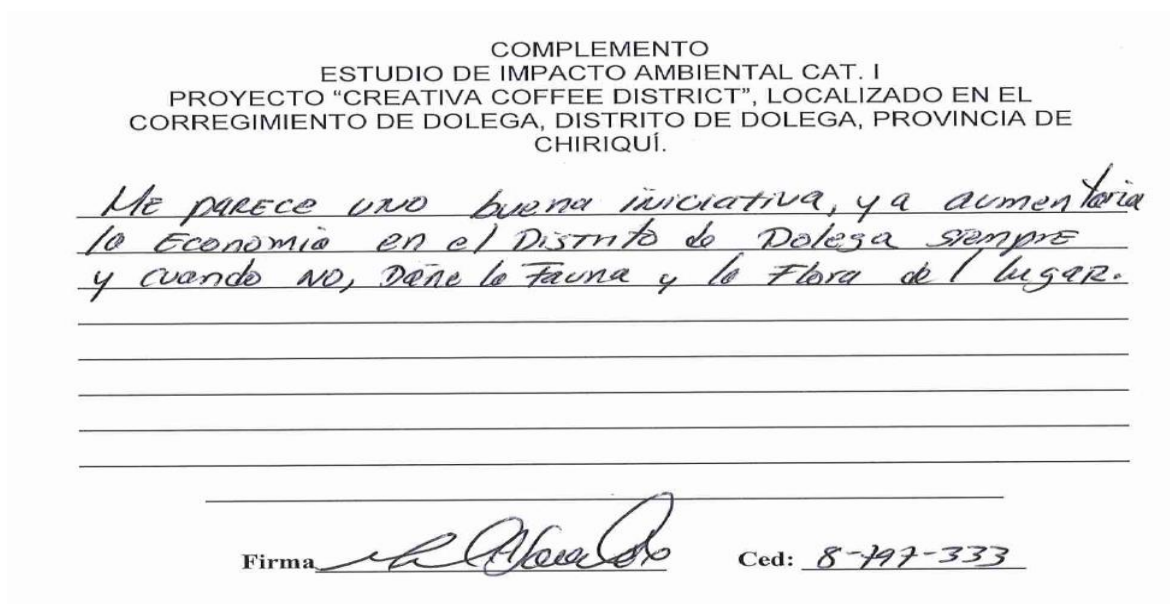 COMPLEMENTO
ESTUDIO DE IMPACTO AMBIENTAL CAT. I
PROYECTO “CREATIVA COFFEE DISTRICT”, LOCALIZADO EN EL
CORREGIMIENTO DE DOLEGA, DISTRITO DE DOLEGA, PROVINCIA DE
CHIRIQUÍ.
Me parece uno buena iniciativa, ya aumentaria
lo Economio en el Distrito de Dolega siempre
y cuando NO, Dañe lo Fauna y lo Flora del lugar.
Firma
Ced: 8-797-333